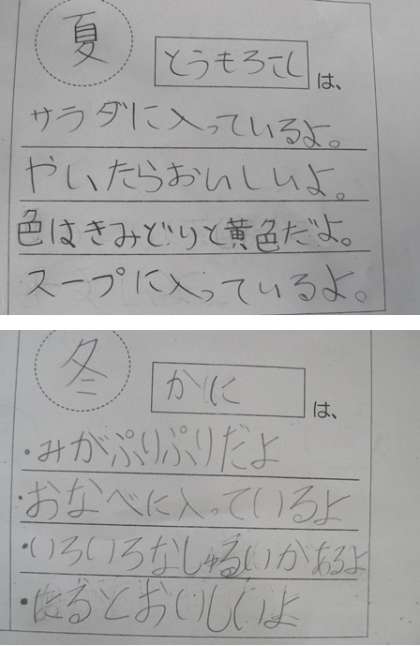 夏
とうもろこし
は、
サラダに入っているよ。
やいたらおいしいよ。
色はきみどりと黄色だよ。
スープに入っているよ。
冬
かに
は、
・みがぷりぷりだよ
・おなべに入っているよ
・いろいろなしゅるいがあるよ
・ほるとおいしいよ